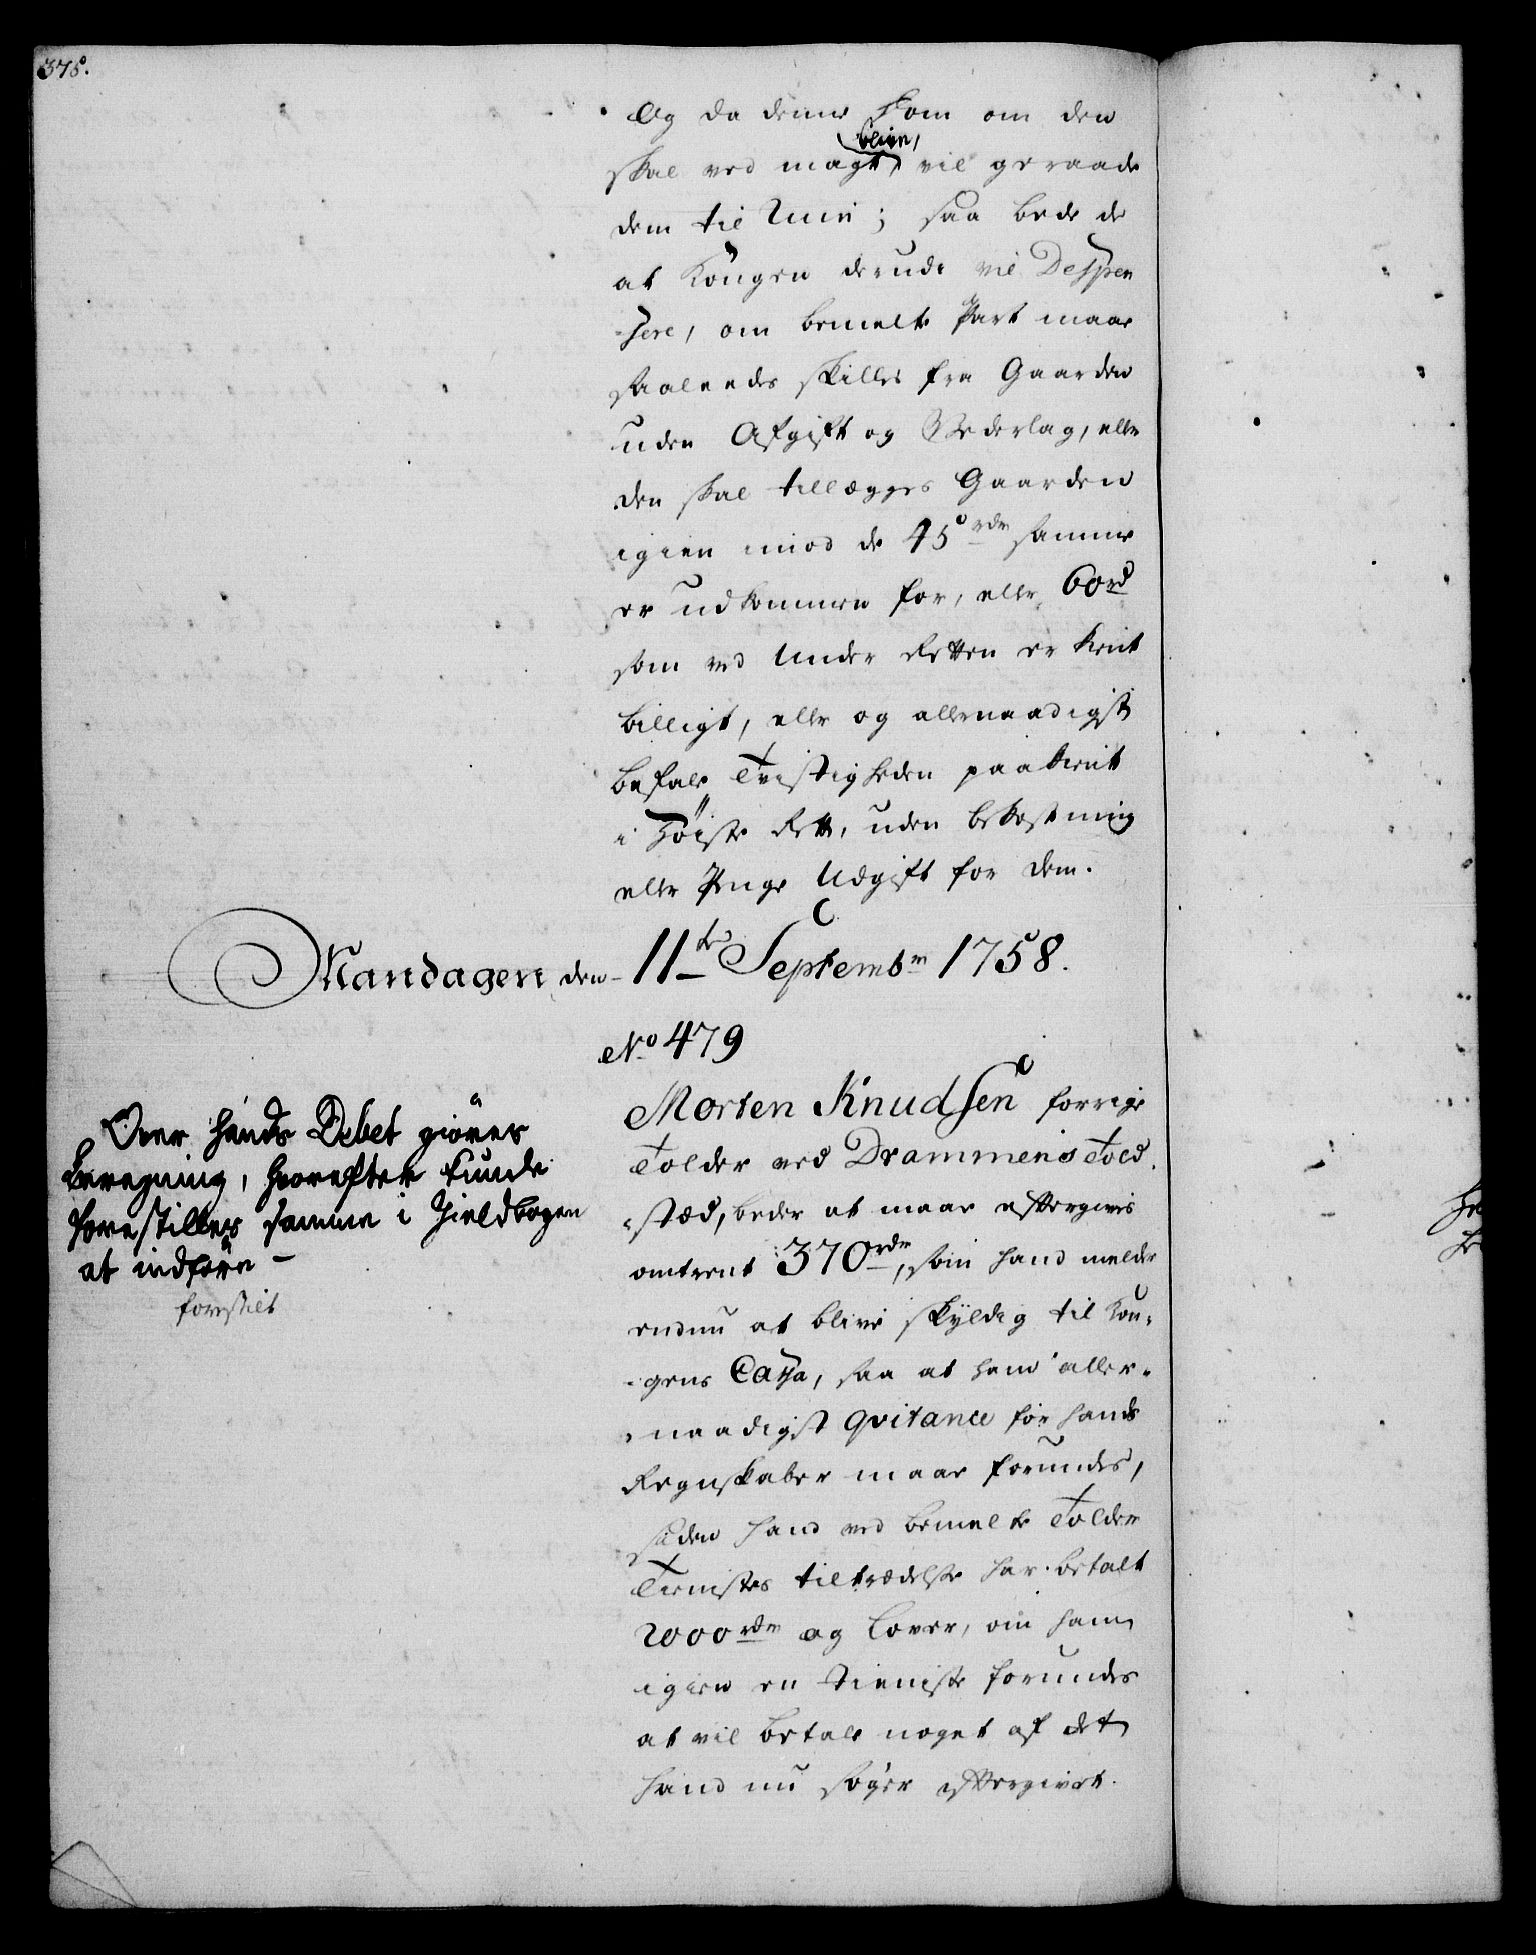 375.
Og da denne Dom om den
skal ved magt blive, vil geraade
dem til Ruin; saa bede de
at Kongen derudi vil Despen
-sere, om bemelte Part maae
saaleedes skilles fra Gaarden
uden Afgift og Vederlag, eller
den skal tillægges Gaarden
igien imod de 45 rdr samme
er udkommen for, eller 60 rd
som ved Under Retten er kient
billigt, eller og allernaadigst
befale Tvistigheden paakient
i Höiste Rett, uden bekostning
eller Penge Udgift for dem.
Mandagen den 11te Septembr 1758.
No 479
Morten Knudsen forrige
Tolder ved Drammens Told-
-stæd, beder at maae eftergives
omtrent 370 rdr, som hand melder
endnu at blive skyldig til Kon-
-gens Cassa, saa at ham aller-
-naadigst qvitance for hands
Regnskaber maae forundes,
siden hand ved bemelte Tolder
Tienistes tiltrædelse har betalt
2000 rdr og lover, om ham
igien en tieniste forundes
at vil betale noget af det
hand nu søger eftergivet.
Over hands Debet giöres
beregning, hvorefter kunde
forestilles samme i Gieldbogen
at indföre —
forestilt